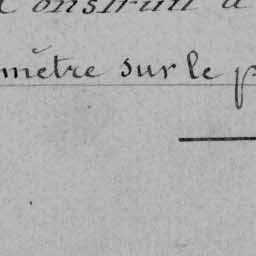 Construit à
mètre sur le p